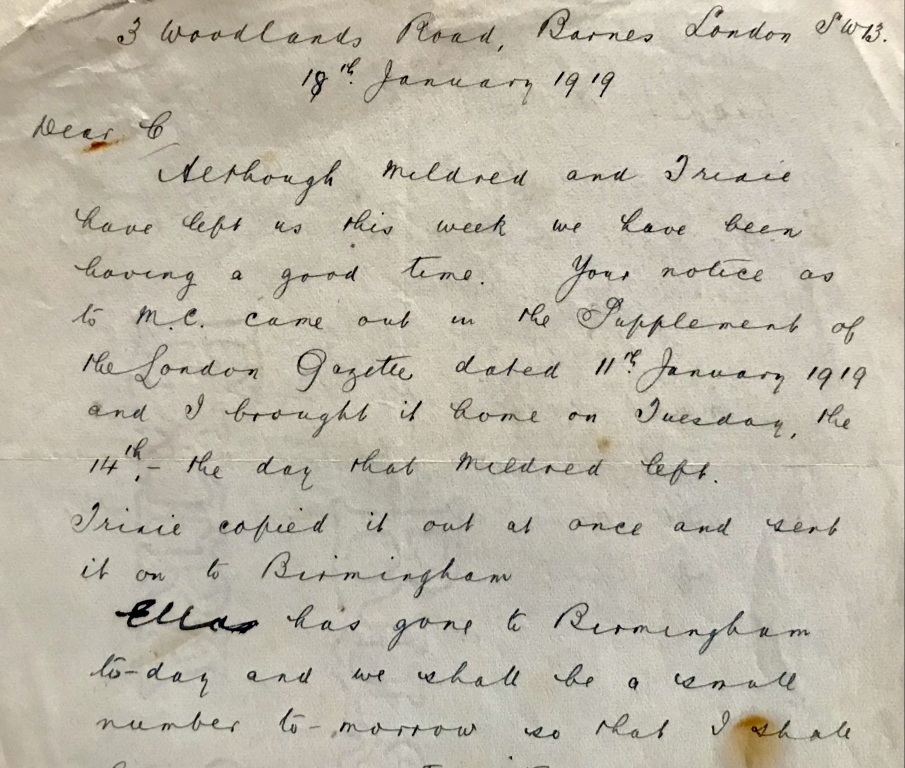 3 Woodlands Road, Barnes London SW13.
18th January 1919
Dear C
Although Mildred and Trixie
have left us this week we have been
having a good time. Your notice as
to M.C. came out in the Supplement of
the London Gazette dated 11th January 1919
and I brought it home on Tuesday, the
14th,- the day that Mildred left.
Trixie copied it out at once and sent
it on to Birmingham
Ella has gone to Birmingham
to-day and we shall be a small
number to-morrow so that I shall